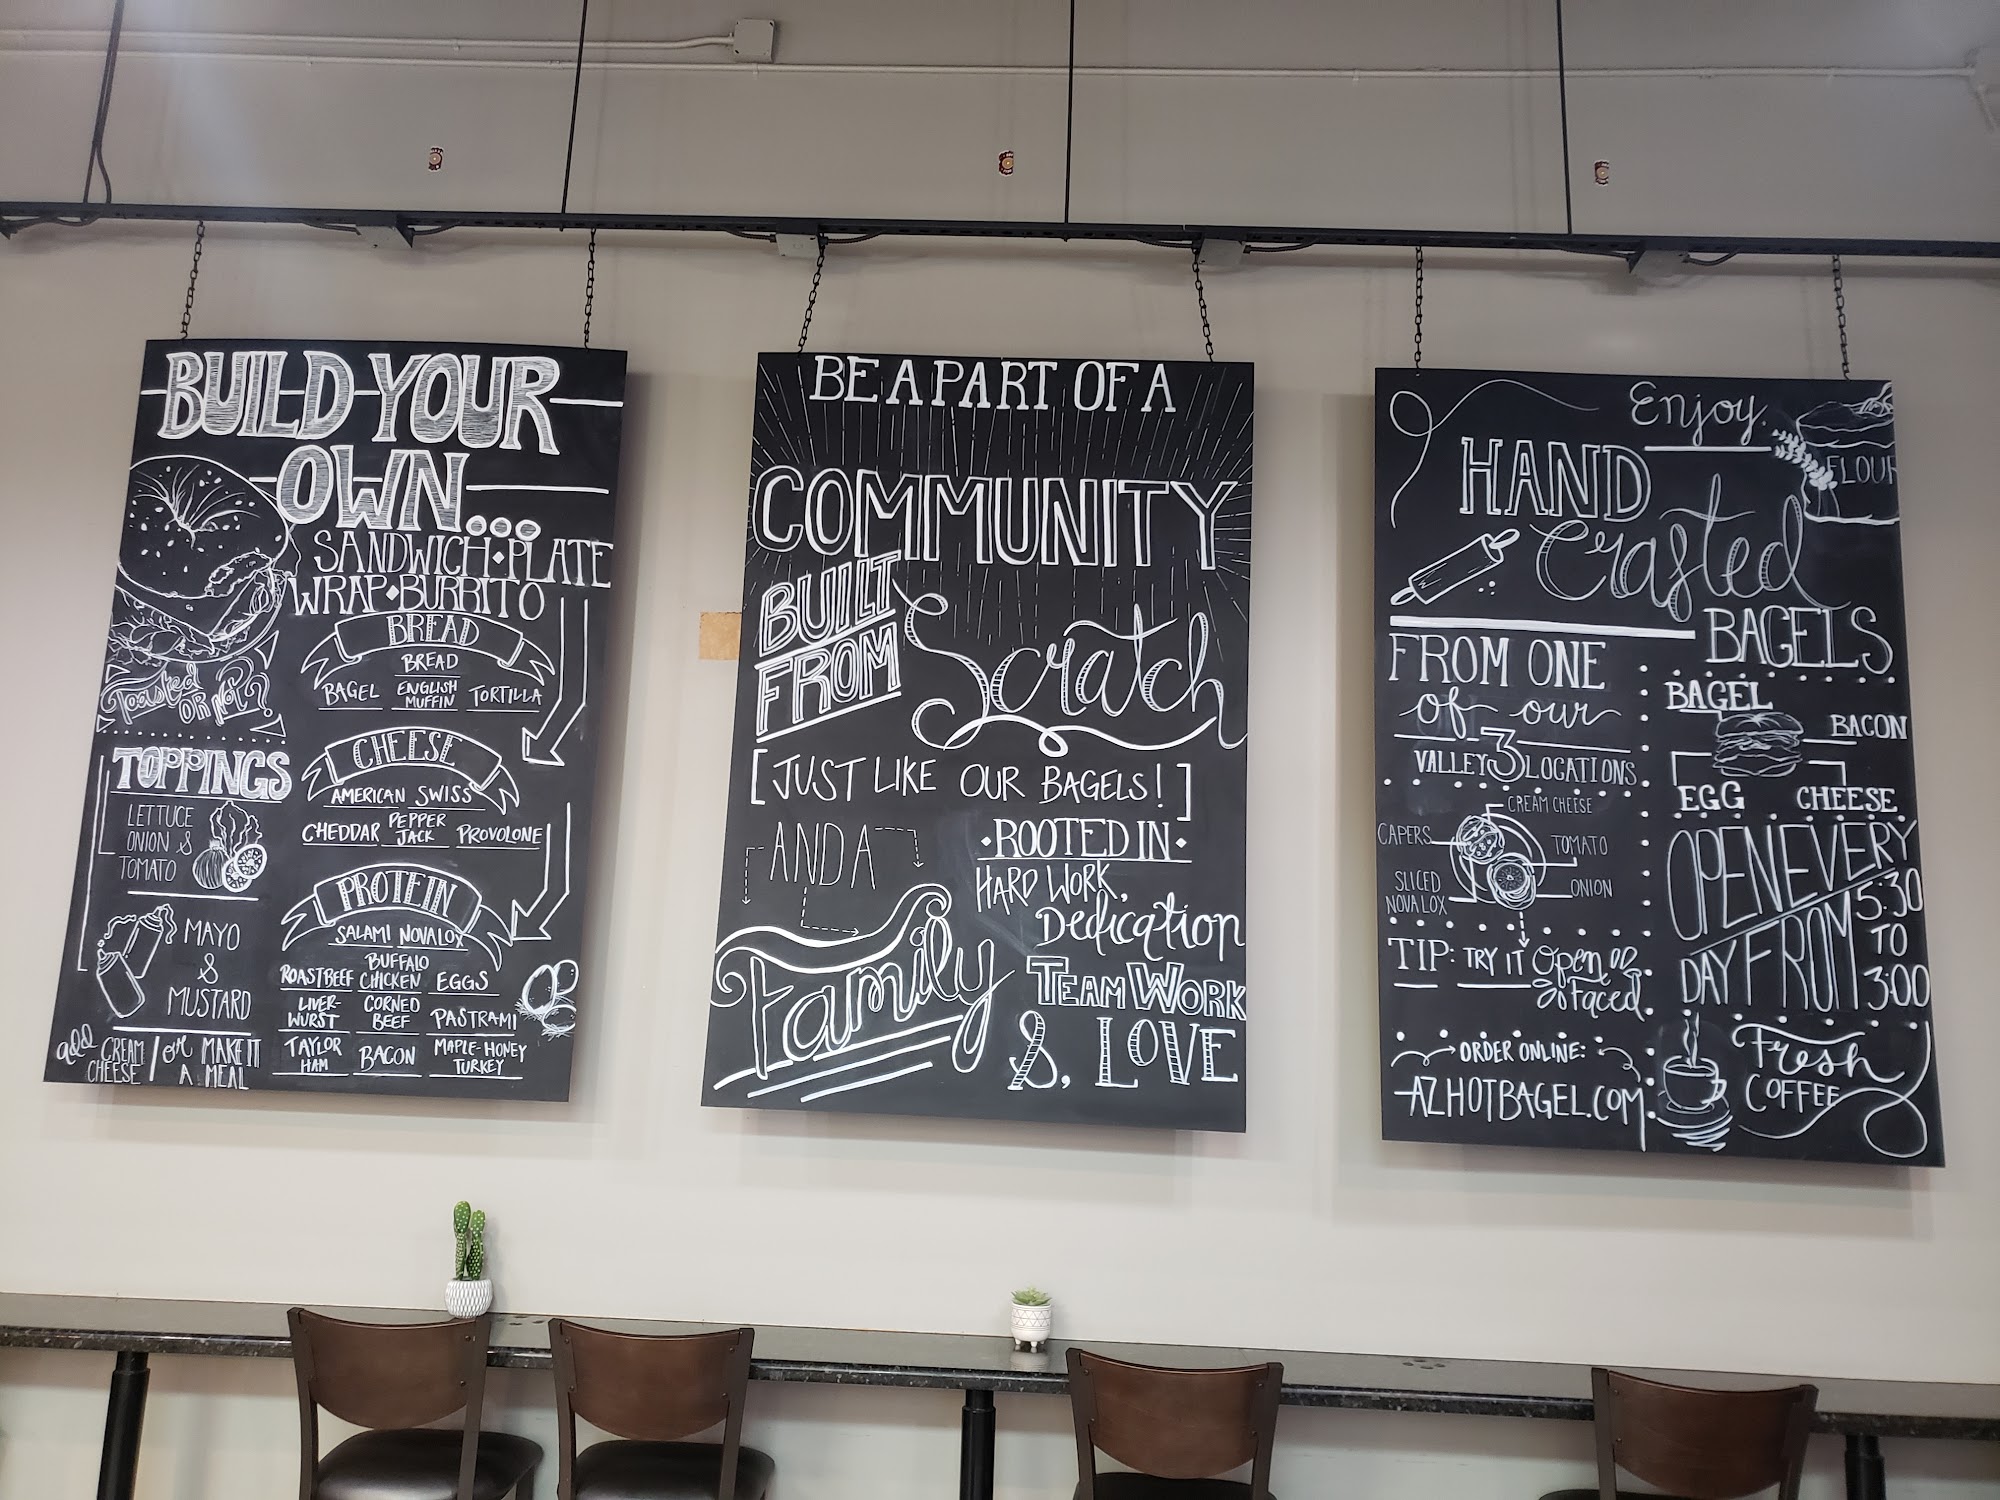 BUILD YOUR
OWN...
SANDWICH PLATE
WRAP BURRITO
BREAD
BREAD
BAGEL ENGLISH MUFFIN TORTILLA
Toasted
OR NOT?
CHEESE
AMERICAN SWISS
CHEDDAR PEPPER JACK PROVOLONE
TOPPINGS
LETTUCE
ONION &
TOMATO
MAYO
&
MUSTARD
add CREAM CHEESE / or MAKE IT A MEAL
PROTEIN
SALAMI NOVA LOX
ROAST BEEF BUFFALO CHICKEN EGGS
LIVER-WURST CORNED BEEF PASTRAMI
TAYLOR HAM BACON MAPLE-HONEY TURKEY
BE A PART OF A
COMMUNITY
BUILT
FROM
Scratch
[JUST LIKE OUR BAGELS!]
AND A
Family
ROOTED IN
HARD WORK,
Dedication
TEAM WORK
&, LOVE
Enjoy
FLOUR
HAND
Crafted
BAGELS
FROM ONE
of our
VALLEY 3 LOCATIONS
CREAM CHEESE
CAPERS
TOMATO
SLICED
NOVA LOX
ONION
TIP: TRY IT Open
Faced
ORDER ONLINE:
AZHOTBAGEL.COM
BAGEL
BACON
EGG
CHEESE
OPEN EVERY
DAY FROM 5:30
TO
3:00
Fresh
COFFEE